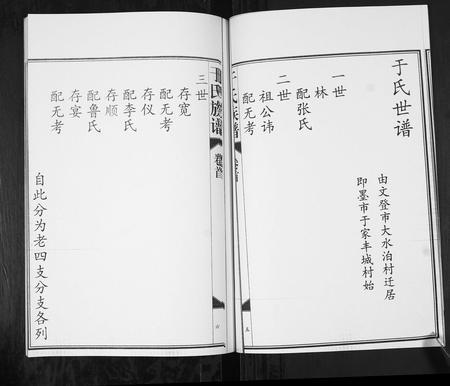 于氏世谱
由文登市大水泊村迁居
即墨市于家丰城村始
一世
林
配张氏
二世
祖公讳
配无考
于氏族谱
卷首
五
于氏族谱
卷首
六
三世
存宽
配无考
存仪
配李氏
存顺
配鲁氏
存宴
配无考
自此分为老四支分支各列